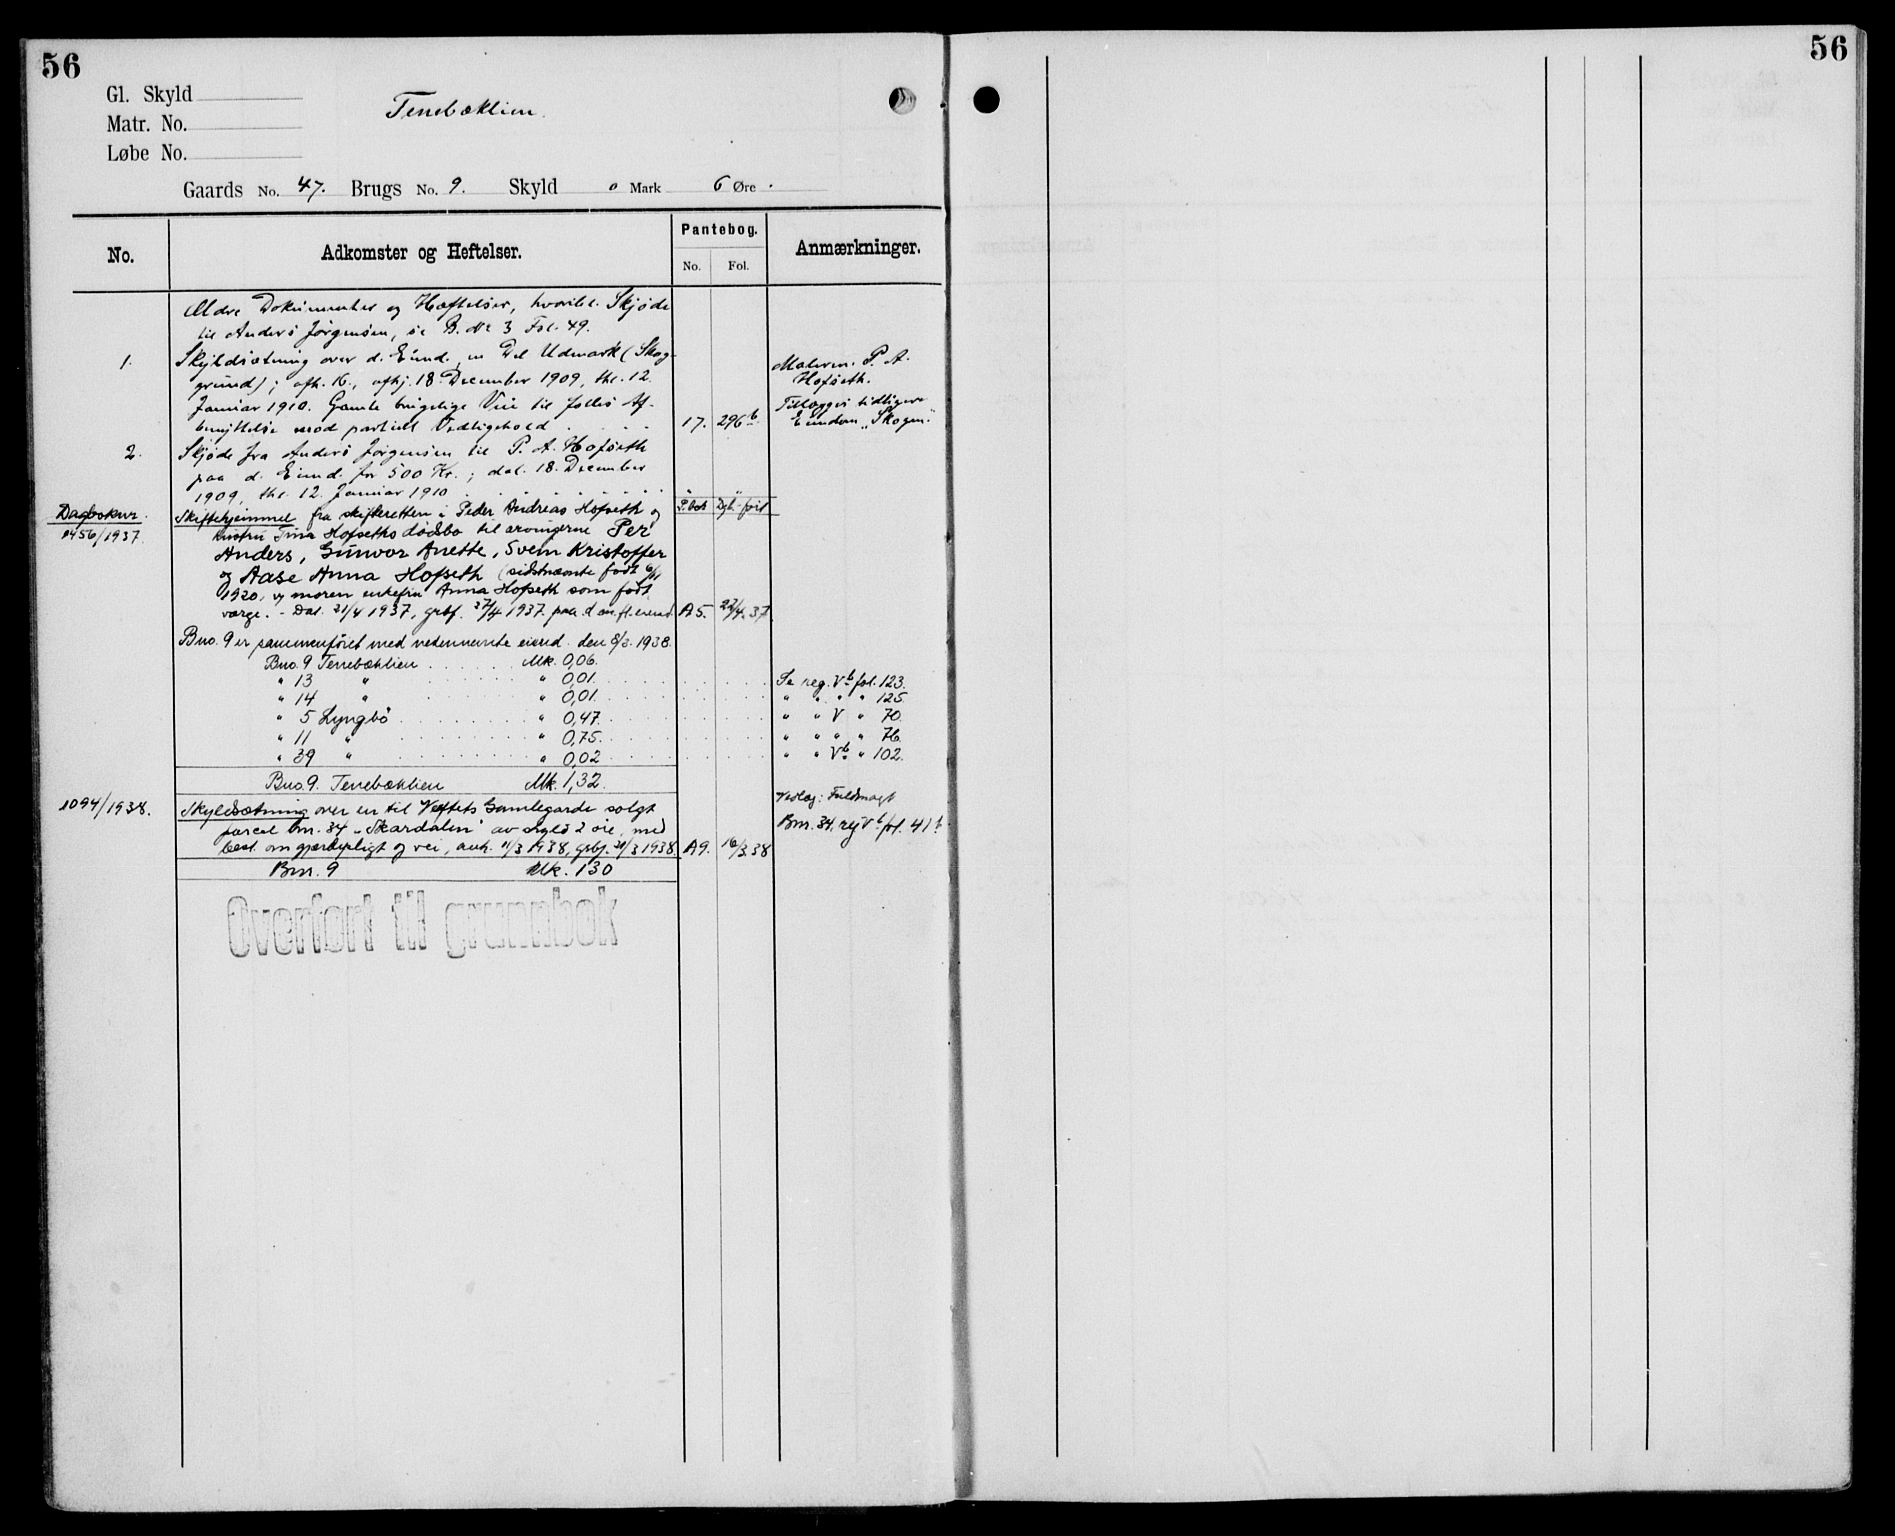 56
56
Gl. Skyld
Matr. No.
Løbe No.
Tenebæklien.
Gaards No. 47. Brugs No. 9. Skyld 0 Mark 6 Øre.
No.
Adkomster og Heftelser.
Pantebog.
No. Fol.
Anmærkninger.
Ældre Dokumenter og Hæftelser, hvoribl. Skjøde
til Anders Jørgensen, se B. No 3 Fol. 49.
1. Skyldsætning over d. Eiend., en Del Udmark (Skog-
grund); afh. 16., afhj. 18. December 1909, thl. 12.
Januar 1910. Gamle brugelige Veie til fælles Af-
benyttelse mod partiell Vedligehold 17. 296b
Matren. P. A.
Hofseth.
Tillægges tidligere
Eiendom „Skogen".
2. Skjøde fra Anders Jørgensen til P. A. Hofseth
paa d. Eiend. for 500 Kr.; dat. 18. December
1909, thl. 12. Januar 1910 " "
Dagboknr. P.bok Dgb.-ført
1456/1937. Skiftehjemmel fra skifteretten i Peder Andreas Hofseth og
hustru Tina Hofseths dødsbo til arvingerne Per
Anders, Gunvor Anette, Svein Kristoffer
og Aase Anna Hofseth (sidstnævnte født 6/11
1920, og moren enkefru Anna Hofseth som født
værge. - Dat. 21/4 1937, grbf. 27/4 1937. paa d. an. fl. eiend. A5. 22/4.37.
Bno. 9 er sammenføiet med nedennevnte eiend. den 8/3. 1938.
Bno. 9 Tenebæklien Mk. 0,06.
" 13 " " 0,01. Se reg. Vb fol. 123.
" 14 " " 0,01. " " " " 125.
" 5 Lyngbø " 0,47. " " V " 70.
" 11 " " 0,75. " " " " 76.
" 39 " " 0,02 " " Vb " 102.
Bno. 9. Tenebæklien Mk. 1,32.
1094/1938. Skyldsætning over en til Gamlegarde solgt
parcel bnr. 34 „Skardalen" av skyld 2 øre, med
best. om gjærdepligt og vei, avh. 11/3 1938, grbf. 21/3 1938. A9. 16/3.38
Vedlag: Fuldmagt
Bnr. 34, reg Vb fol. 41b
Bnr. 9 Mk. 1 30
Overført til grunnbok